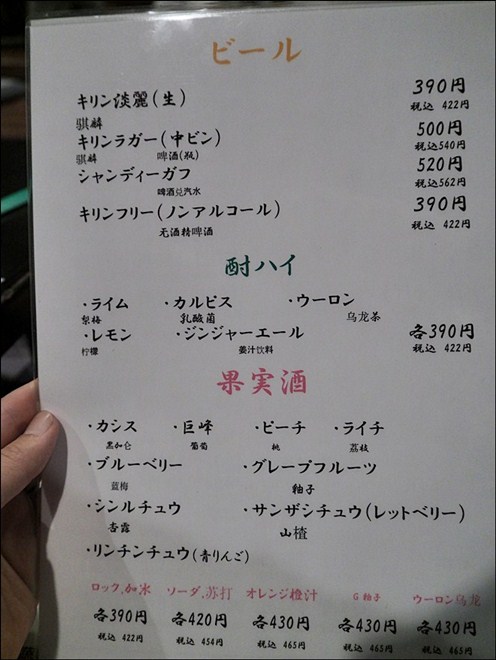 ビール
キリン淡麗(生) 390円
騏麟 税込 422円
キリンラガー(中ビン) 500円
騏麟 啤酒(瓶) 税込540円
シャンディーガフ 520円
啤酒兑汽水 税込562円
キリンフリー(ノンアルコール) 390円
无酒精啤酒 税込 422円
酎ハイ
・ライム ・カルピス ・ウーロン
梨梅 乳酸菌 乌龙茶
・レモン ・ジンジャーエール 各390円
柠檬 姜汁饮料 税込 422円
果実酒
・カシス ・巨峰 ・ピーチ ・ライチ
黑加仑 葡萄 桃 荔枝
・ブルーベリー ・グレープフルーツ
蓝梅 釉子
・シンルチュウ ・サンザシチュウ(レットベリー)
杏露 山楂
・リンチンチュウ(青りんご)
ロック,加冰 ソーダ,苏打 オレンジ橙汁 G 釉子 ウーロン乌龙
各390円 各420円 各430円 各430円 各430円
税込 422円 税込 454円 税込 465円 税込 465円 税込 465円